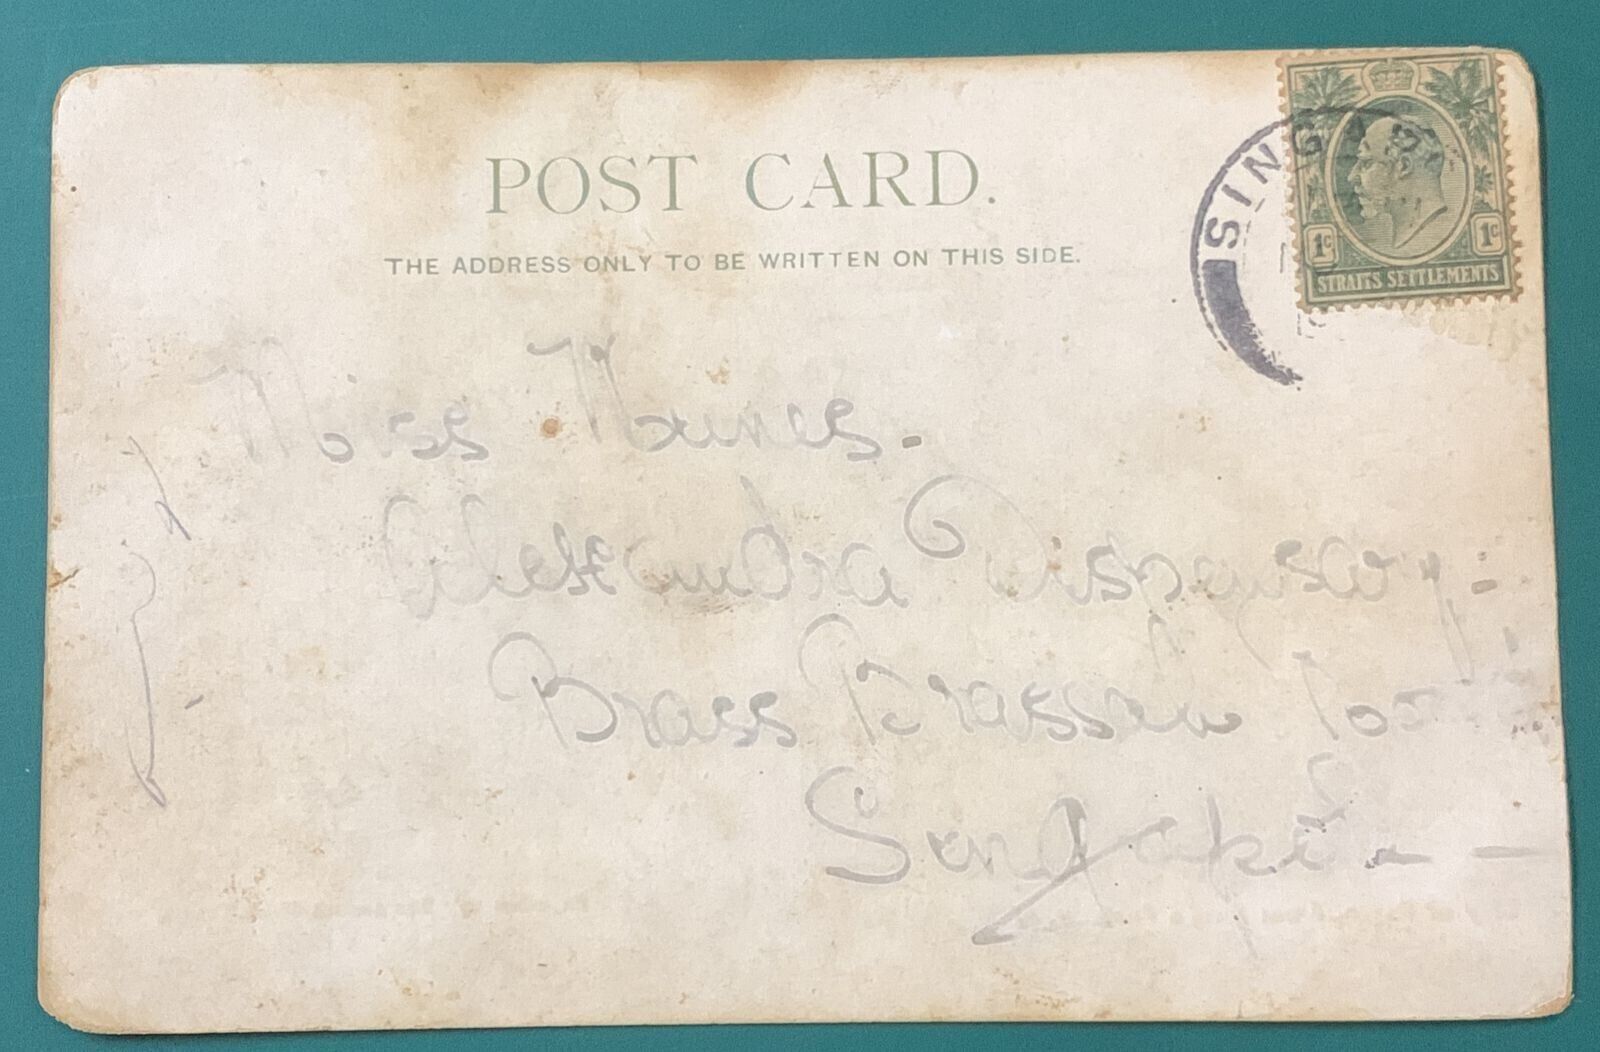 POST CARD.
THE ADDRESS ONLY TO BE WRITTEN ON THIS SIDE.
SINGAPO
1c 1c
STRAITS SETTLEMENTS
Miss Nunes.
Alexandra Dispensary.
Brass Brassah
Singapore